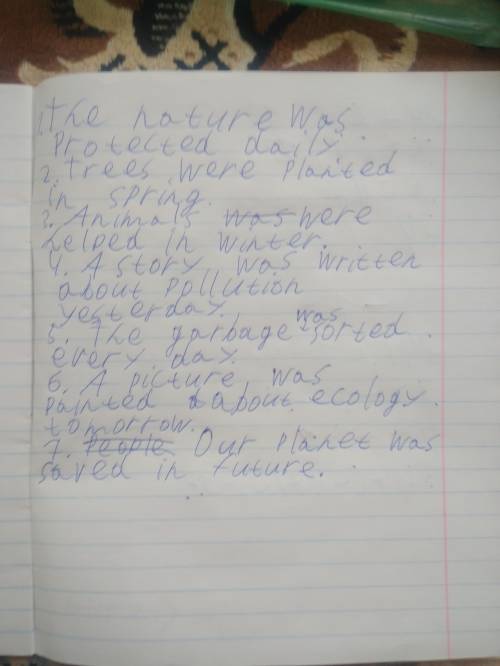 1. The nature was
protected daily.
2. Trees were planted
in spring.
3. Animals was were
helped in winter.
4. A story was written
about pollution
yesterday.
5. The garbage was sorted
every day.
6. A picture was
painted about ecology
tomorrow.
7. People Our planet was
saved in future.